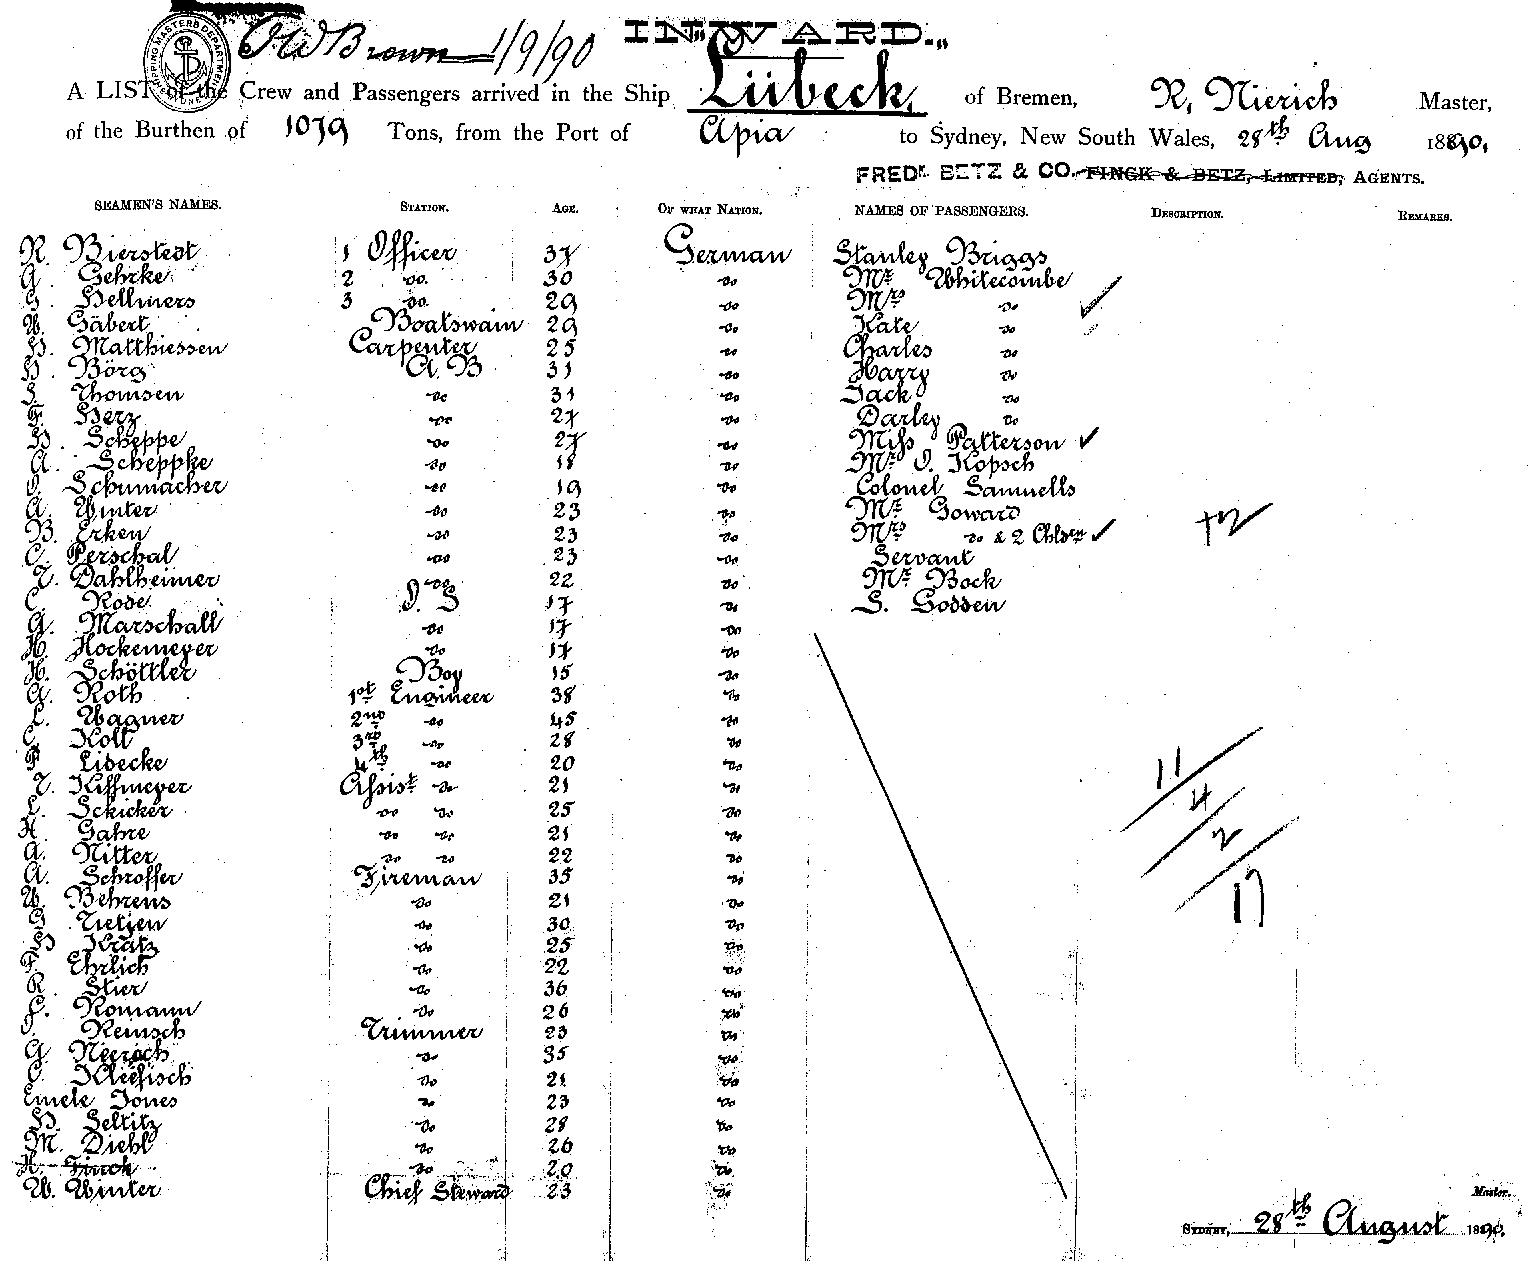 INWARD.
SHIPPING MASTERS DEPARTMENT
SYDNEY
Brown 1/9/90
A LIST of the Crew and Passengers arrived in the Ship Lübeck, of Bremen, R. Nierich Master,
of the Burthen of 1079 Tons, from the Port of Apia to Sydney, New South Wales, 28th Aug 1890.
FREDk BETZ & CO. FINCK & BETZ, LIMITED, AGENTS.
SEAMEN'S NAMES. STATION. AGE. OF WHAT NATION. NAMES OF PASSENGERS. DESCRIPTION. REMARKS.
R. Bierstedt 1 Officer 37 German Stanley Briggs
G. Gehrke 2 do. 30 do Mr Whitecombe
G. Hellmers 3 do. 29 do Mrs do
W. Gäbert Boatswain 29 do Kate do
H. Matthiessen Carpenter 25 do Charles do
H. Börg A. B 31 do Harry do
Thomsen do 31 do Jack do
F. Herz do 27 do Darley do
H. Scheppe do 27 do Miss Patterson
A. Scheppke do 18 do Mr O. Kopsch
O. Schumacher do 19 do Colonel Samuells
A. Winter do 23 do Mr Goward
B. Erken do 23 do Mrs do & 2 Chlden +2
C. Perschal do 23 do Servant
T. Dahlheimer do 22 do Mr Bock
C. Rode O. S 17 do S. Godden
G. Marschall do 17 do
H. Hockemeyer do 17 do
H. Schöttler Boy 15 do
G. Roth 1st Engineer 38 do
L. Wagner 2nd do 45 do
C. Koll 3rd do 28 do
F Lidecke 4th do 20 do
T. Kiffmeyer Assist do 21 do
L. Schicker do do 25 do
H. Gahre do do 21 do
A. Nitter do do 22 do
A. Schroffer Fireman 35 do
W. Behrens do 21 do
G Tietjen do 30 do
H Kratz do 25 do
F. Ehrlich do 22 do
R. Stier do 36 do
F. Romann do 26 do
Remsch Trimmer 23 do
G. Neerach do 35 do
C. Kleefisch do 21 do
Emele Jones do 23 do
H. Seltitz do 28 do
M. Diehl do 26 do
H. Finck do 20 do
W. Winter Chief Steward 23 do
11
4
2
17
Master.
SYDNEY, 28th August 1890.